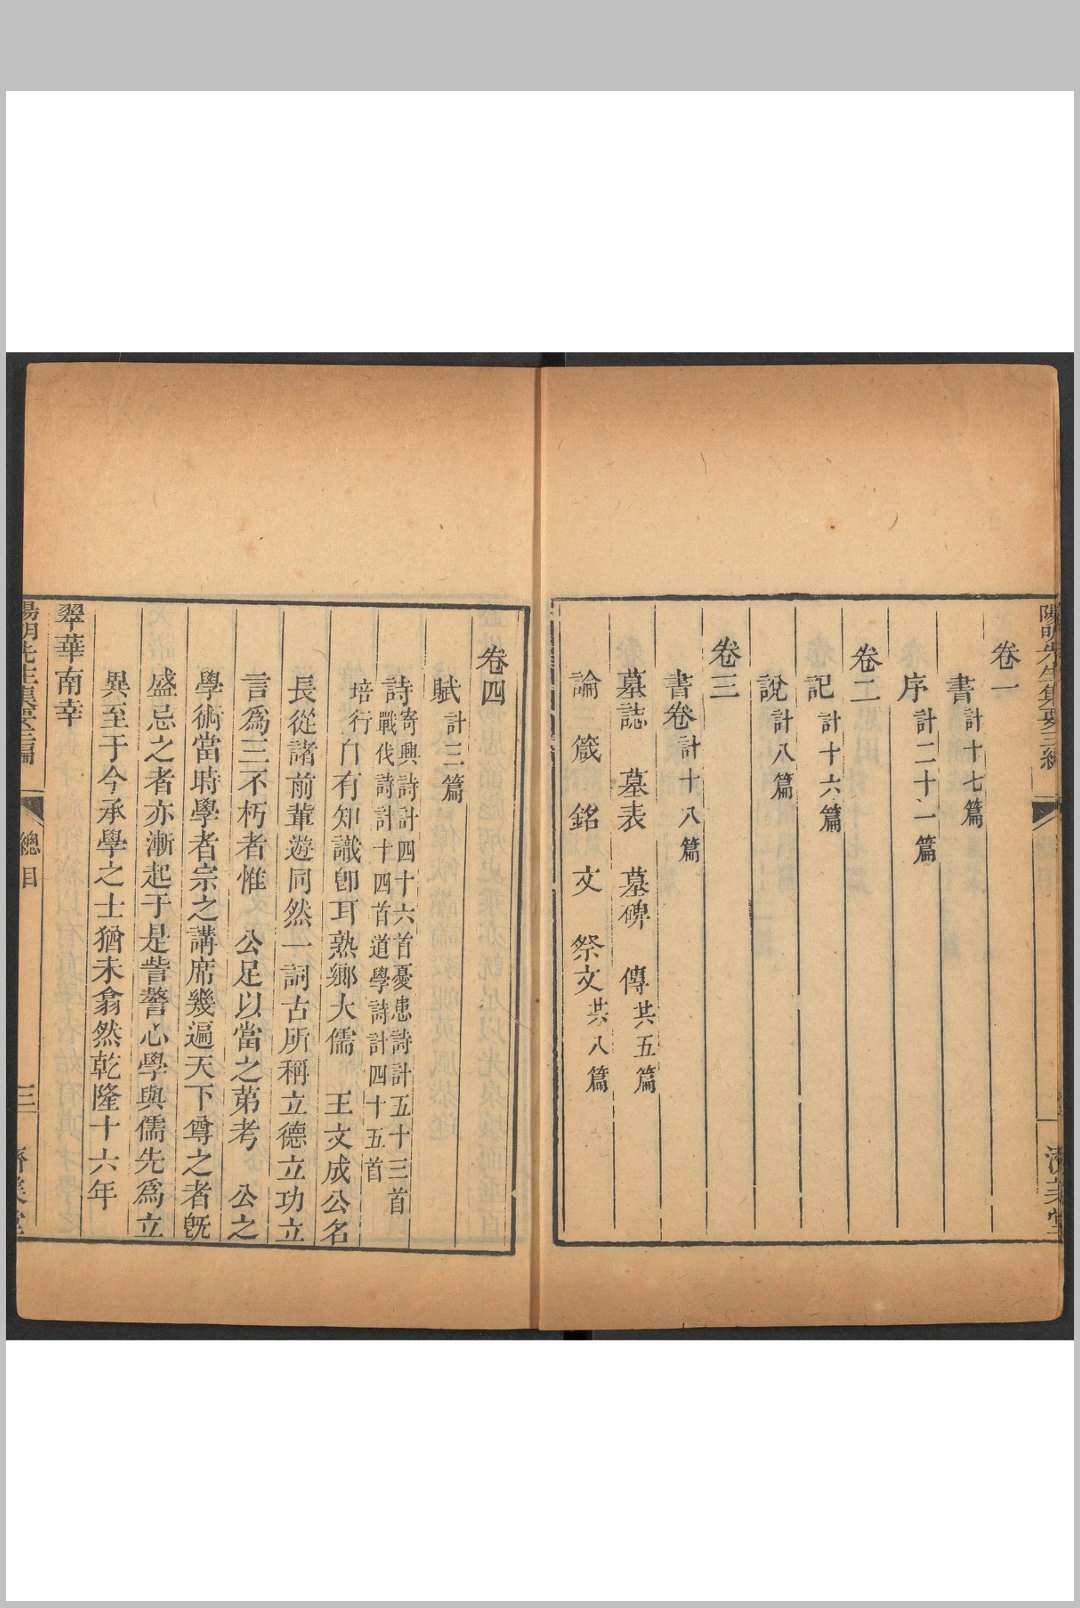 陽明先生集要三編
濟美堂
卷一
書計十七篇
序計二十一篇
卷二
記計十六篇
說計八篇
卷三
書卷計十八篇
墓誌 墓表 墓碑 傳共五篇
論 箴 銘 文 祭文共八篇
卷四
賦計三篇
詩寄興詩計四十六首憂患詩計五十三首
戰伐詩計十四首道學詩計四十五首
培行自有知識卽耳熟鄉大儒 王文成公名
長從諸前輩遊同然一詞古所稱立德立功立
言爲三不朽者惟 公足以當之第考 公之
學術當時學者宗之講席幾遍天下尊之者旣
盛忌之者亦漸起于是訾警心學與儒先爲立
異至于今承學之士猶未翕然乾隆十六年
翠華南幸
陽明先生集要三編
總目
三
濟美堂